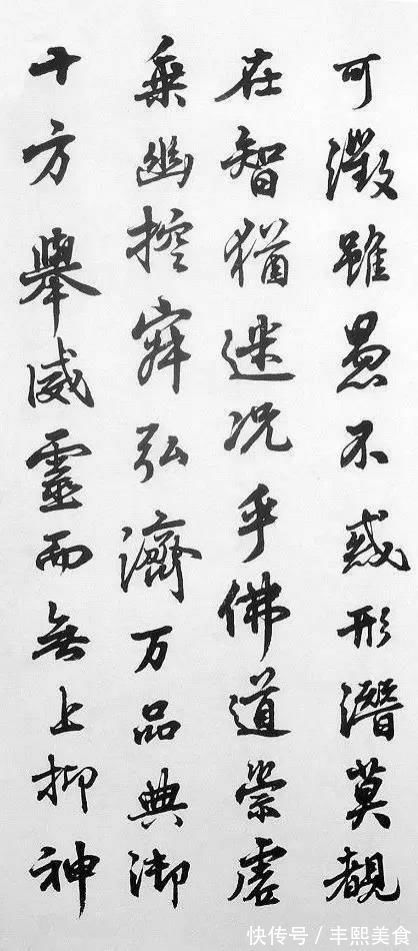 可徵雖愚不惑形潛莫覩
在智猶迷況乎佛道崇虛
乘幽控寂弘濟万品典御
十方舉威靈而無上抑神
快传号 / 丰熙美食